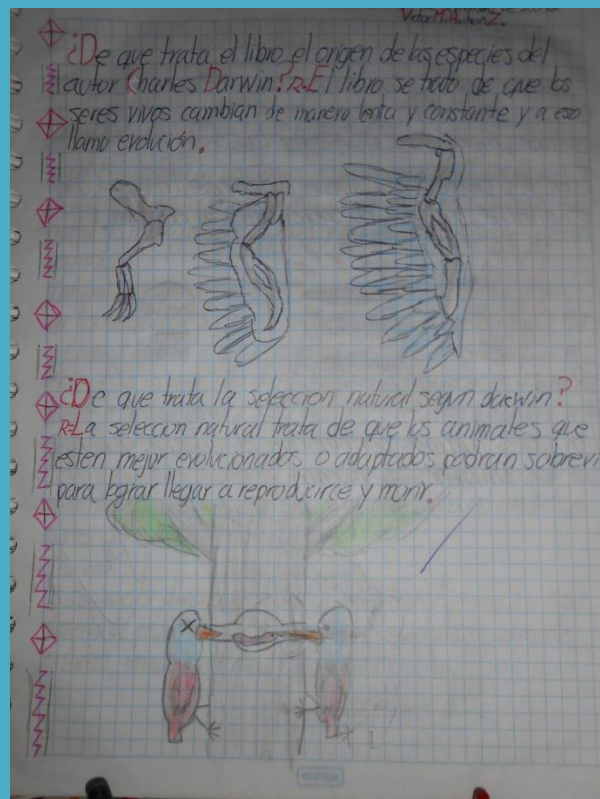 Victor M.
¿De que trata el libro el origen de las especies del
autor Charles Darwin? R=El libro se trata de que los
seres vivos cambian de manera lenta y constante y a eso
llamo evolución.
¿De que trata la seleccion natural segun darwin?
R=La seleccion natural trata de que los animales que
esten mejor evolucionados o adaptados podran sobrevi
para lograr llegar a reproducirce y morir.
norma